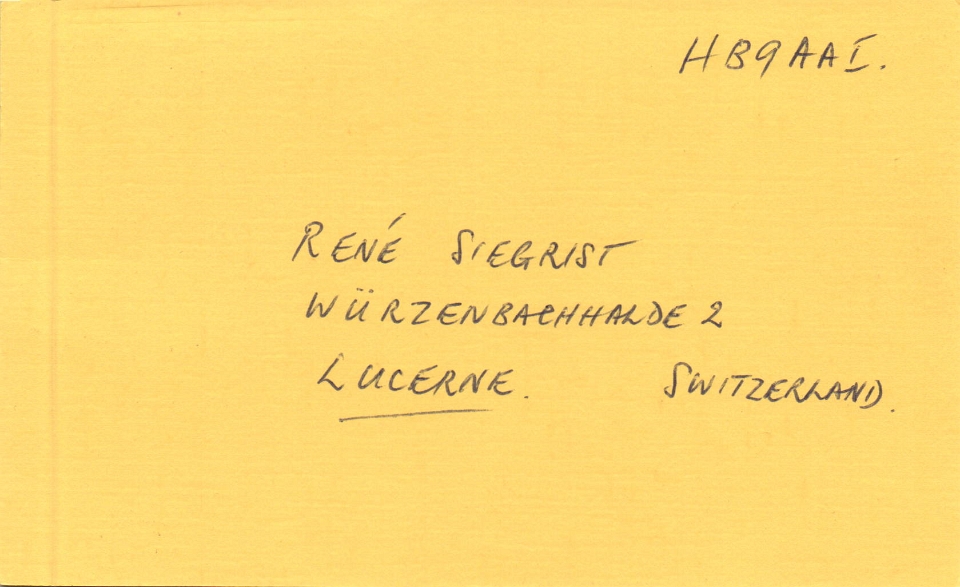 HB9AAI.
RENÉ SIEGRIST
WÜRZENBACHHALDE 2
LUCERNE. SWITZERLAND.